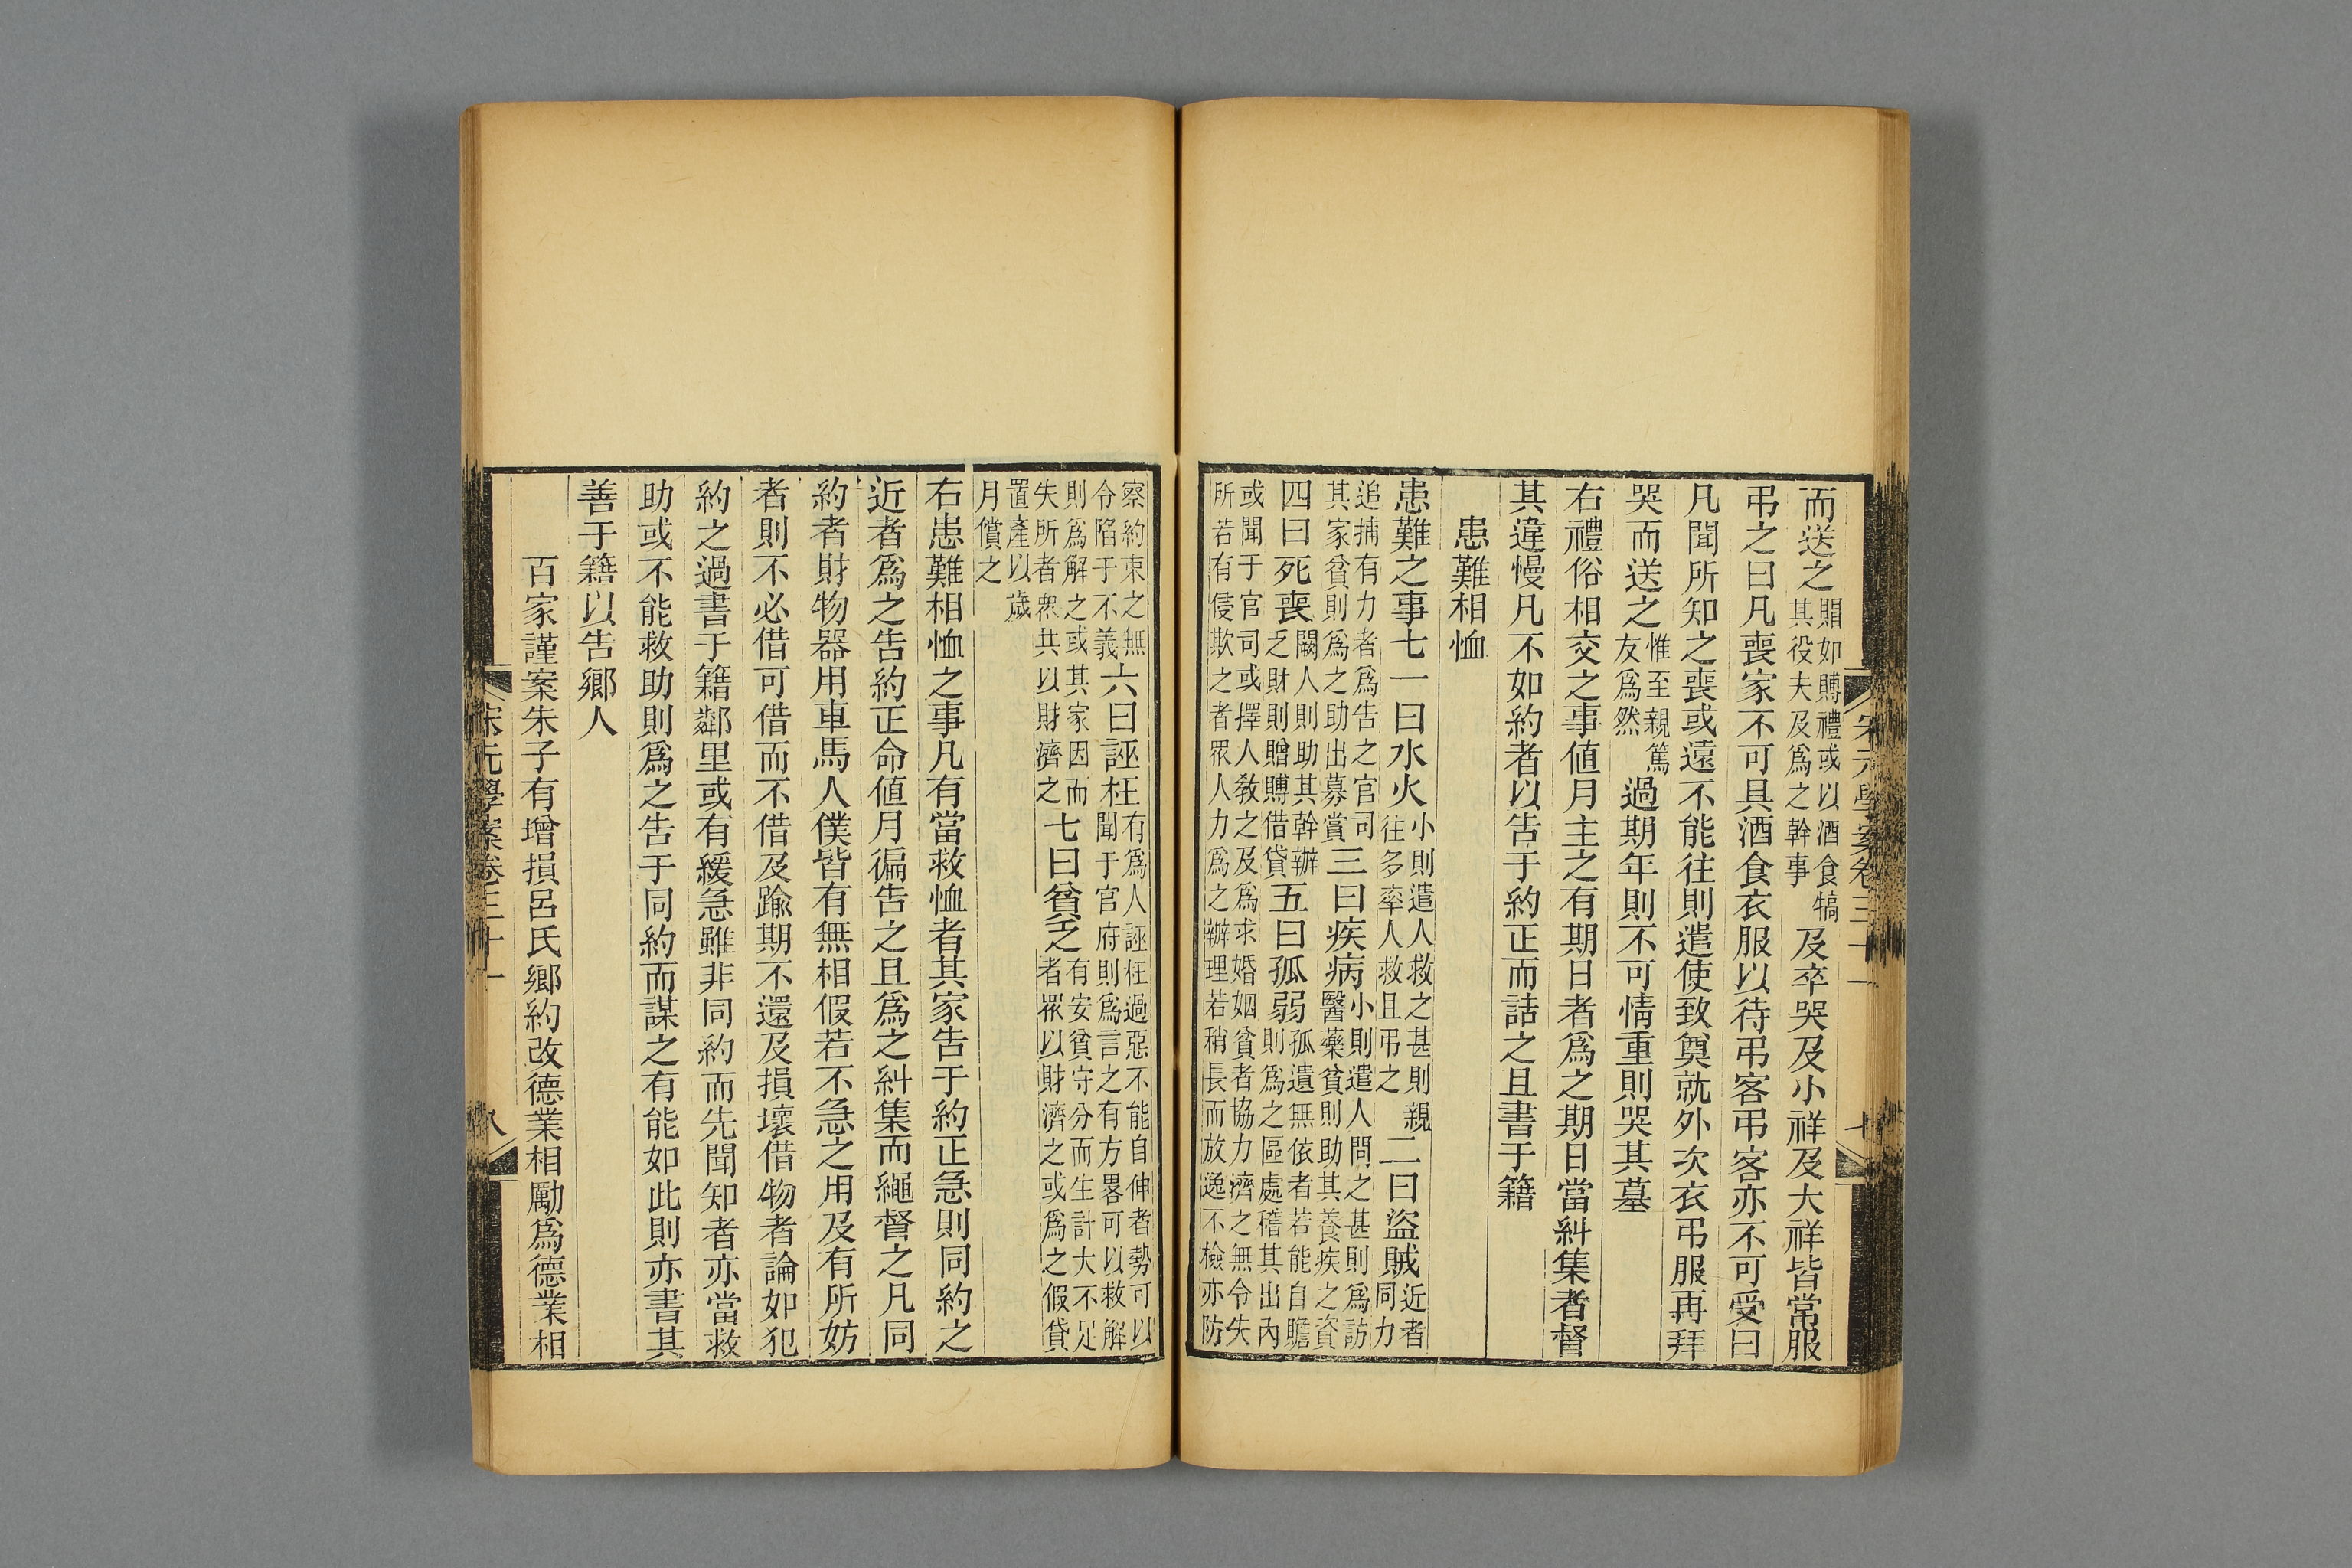 宋元學案卷三十一
七
而送之賵如賻禮或以酒食犒其役夫及爲之幹事及卒哭及小祥及大祥皆常服
弔之曰凡喪家不可具酒食衣服以待弔客弔客亦不可受曰
凡聞所知之喪或遠不能往則遣使致奠就外次衣弔服再拜
哭而送之惟至親篤友爲然過期年則不可情重則哭其墓
右禮俗相交之事値月主之有期日者爲之期日當糾集者督
其違慢凡不如約者以告于約正而詰之且書于籍
患難相恤
患難之事七一曰水火小則遣人救之甚則親往多率人救且弔之二曰盜賊近者同力
追捕有力者爲告之官司其家貧則爲之助出募賞三曰疾病小則遣人問之甚則爲訪醫藥貧則助其養疾之資
四曰死喪闕人則助其幹辦乏財則贈賻借貸五曰孤弱孤遺無依者若能自贍則爲之區處稽其出內
或聞于官司或擇人敎之及爲求婚姻貧者協力濟之無令失所若有侵欺之者眾人力爲之辦理若稍長而放逸不檢亦防
察約束之無令陷于不義六曰誣枉有爲人誣枉過惡不能自伸者勢可以聞于官府則爲言之有方畧可以救解
則爲解之或其家因而失所者眾共以財濟之七曰貧乏有安貧守分而生計大不足者眾以財濟之或爲之假貸
置產以歲月償之
右患難相恤之事凡有當救恤者其家告于約正急則同約之
近者爲之告約正命値月徧告之且爲之糾集而繩督之凡同
約者財物器用車馬人僕皆有無相假若不急之用及有所妨
者則不必借可借而不借及踰期不還及損壞借物者論如犯
約之過書于籍鄰里或有緩急雖非同約而先聞知者亦當救
助或不能救助則爲之告于同約而謀之有能如此則亦書其
善于籍以告鄉人
百家謹案朱子有增損呂氏鄉約改德業相勵爲德業相
宋元學案卷三十一
八